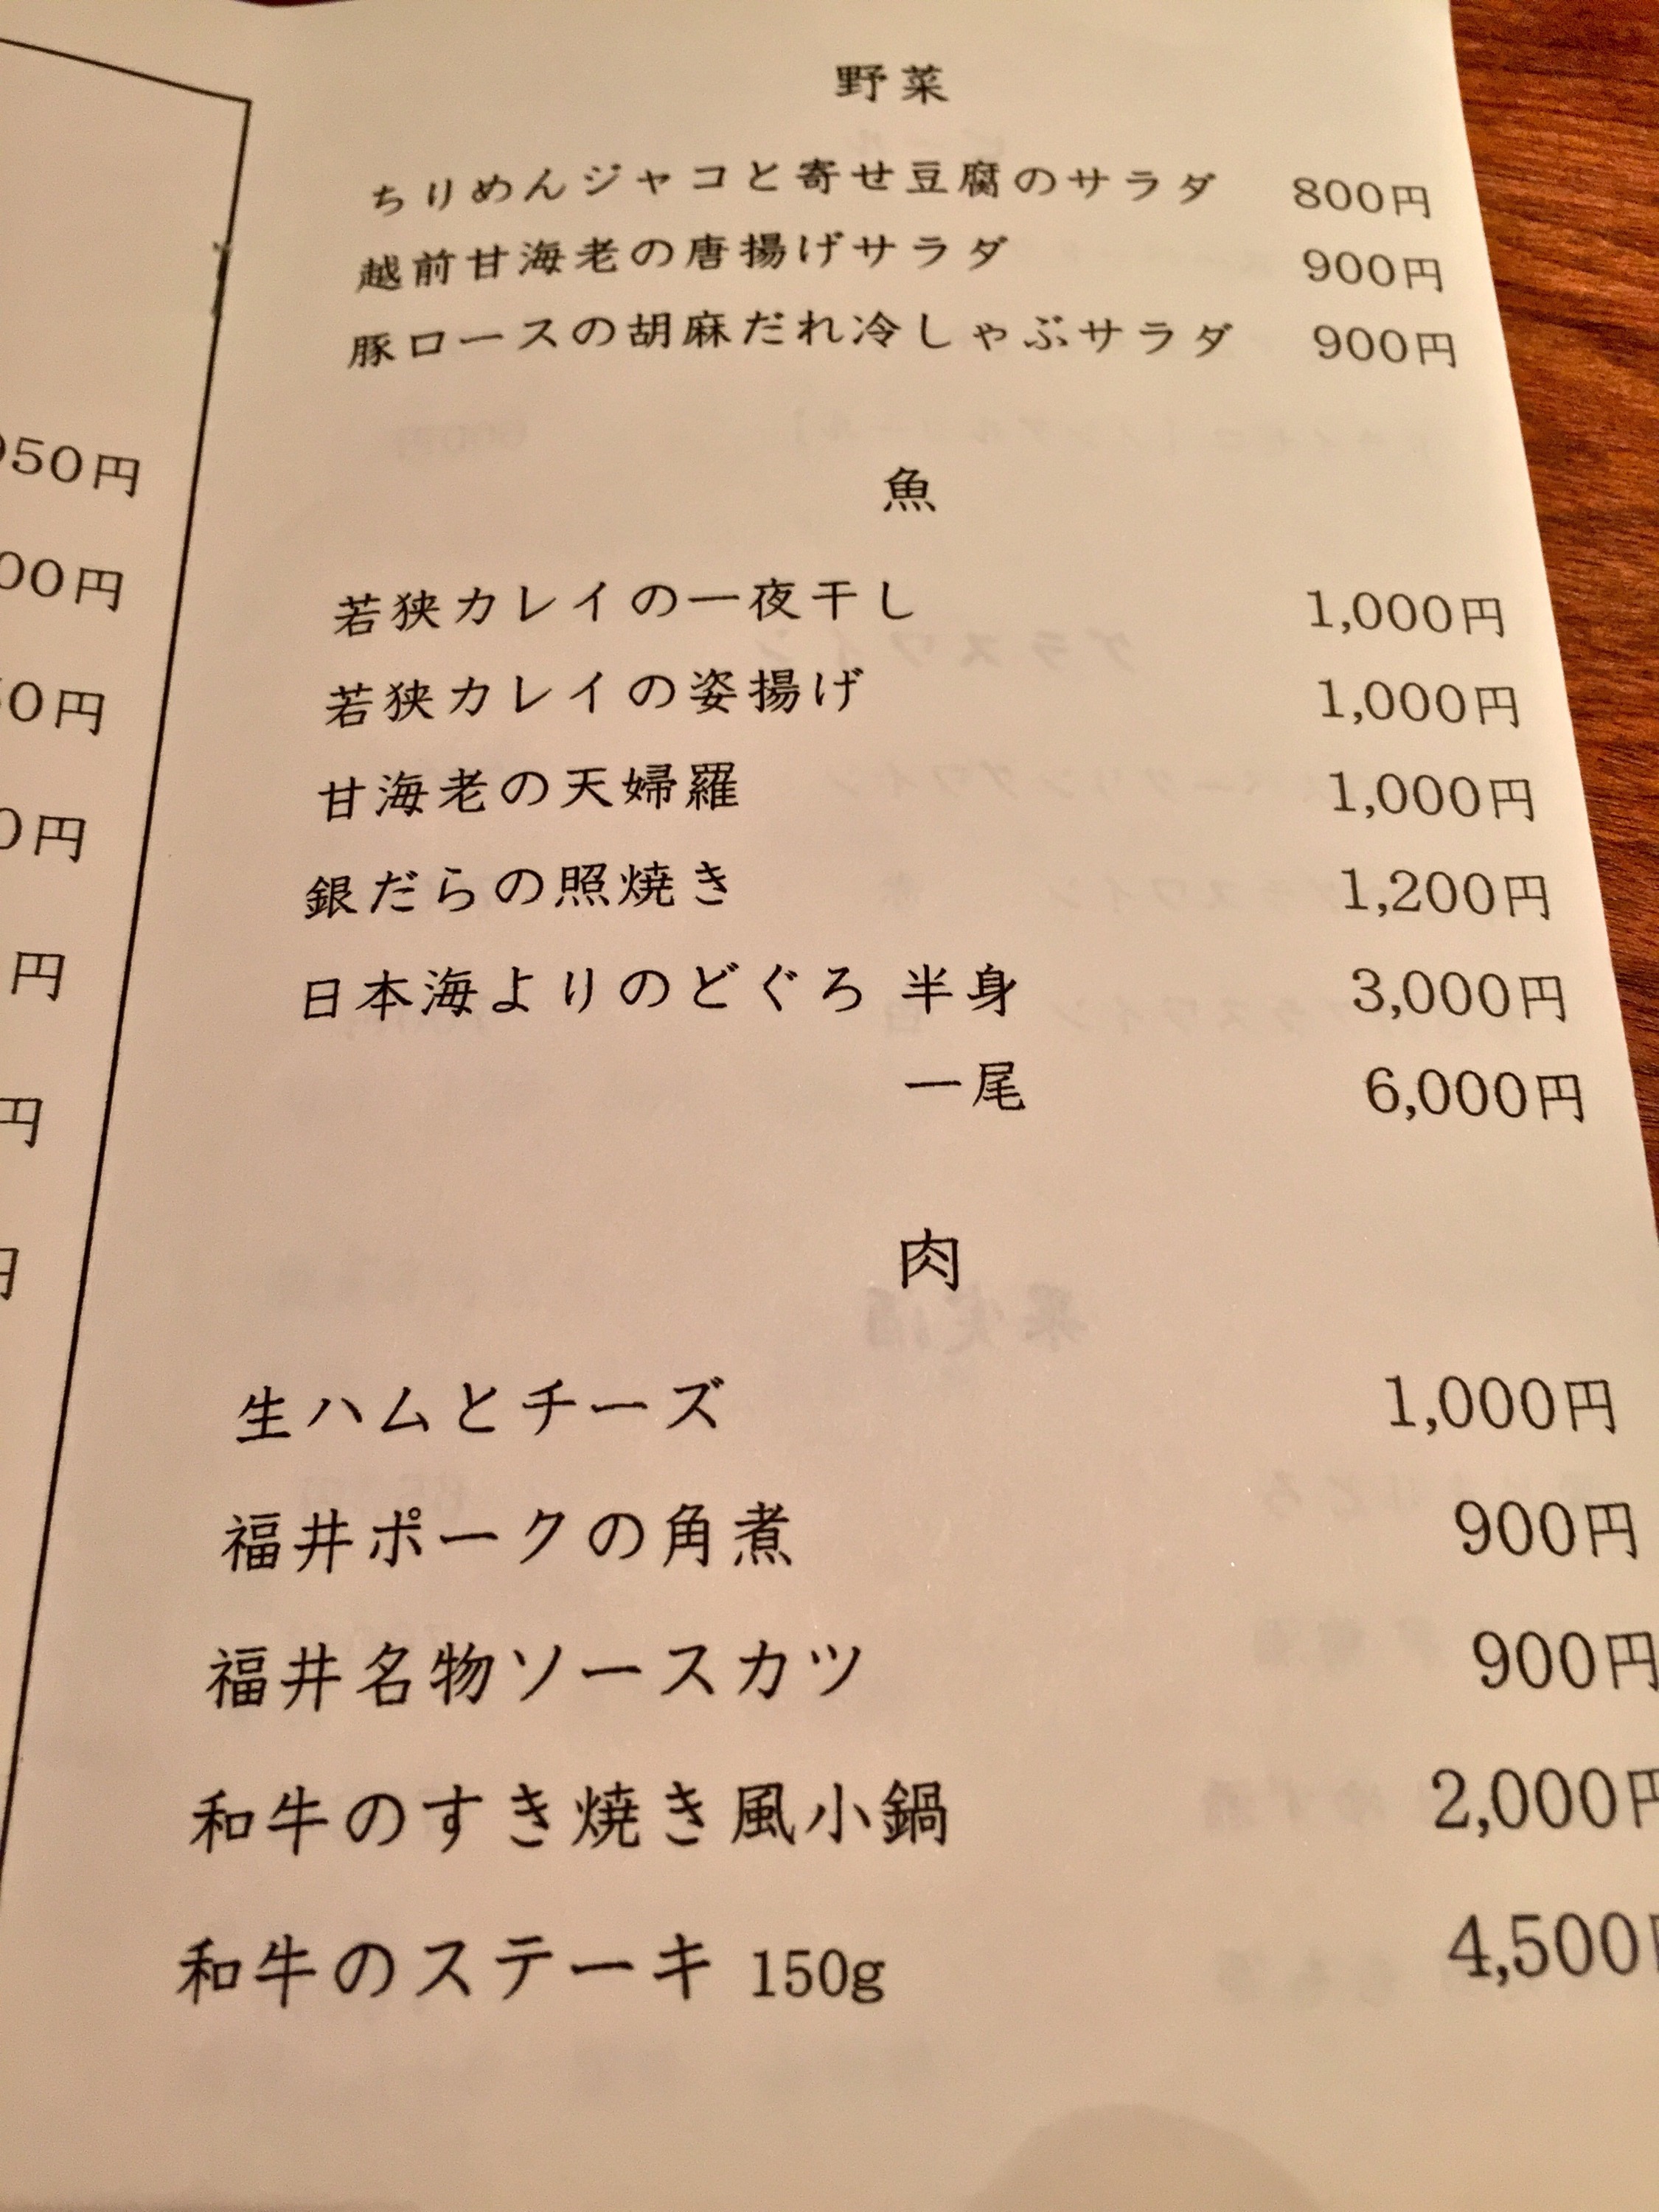 野菜
ちりめんジャコと寄せ豆腐のサラダ 800円
越前甘海老の唐揚げサラダ 900円
豚ロースの胡麻だれ冷しゃぶサラダ 900円
魚
若狭カレイの一夜干し 1,000円
若狭カレイの姿揚げ 1,000円
甘海老の天婦羅 1,000円
銀だらの照焼き 1,200円
日本海よりのどぐろ 半身 3,000円
一尾 6,000円
肉
生ハムとチーズ 1,000円
福井ポークの角煮 900円
福井名物ソースカツ 900円
和牛のすき焼き風小鍋 2,000円
和牛のステーキ 150g 4,500円